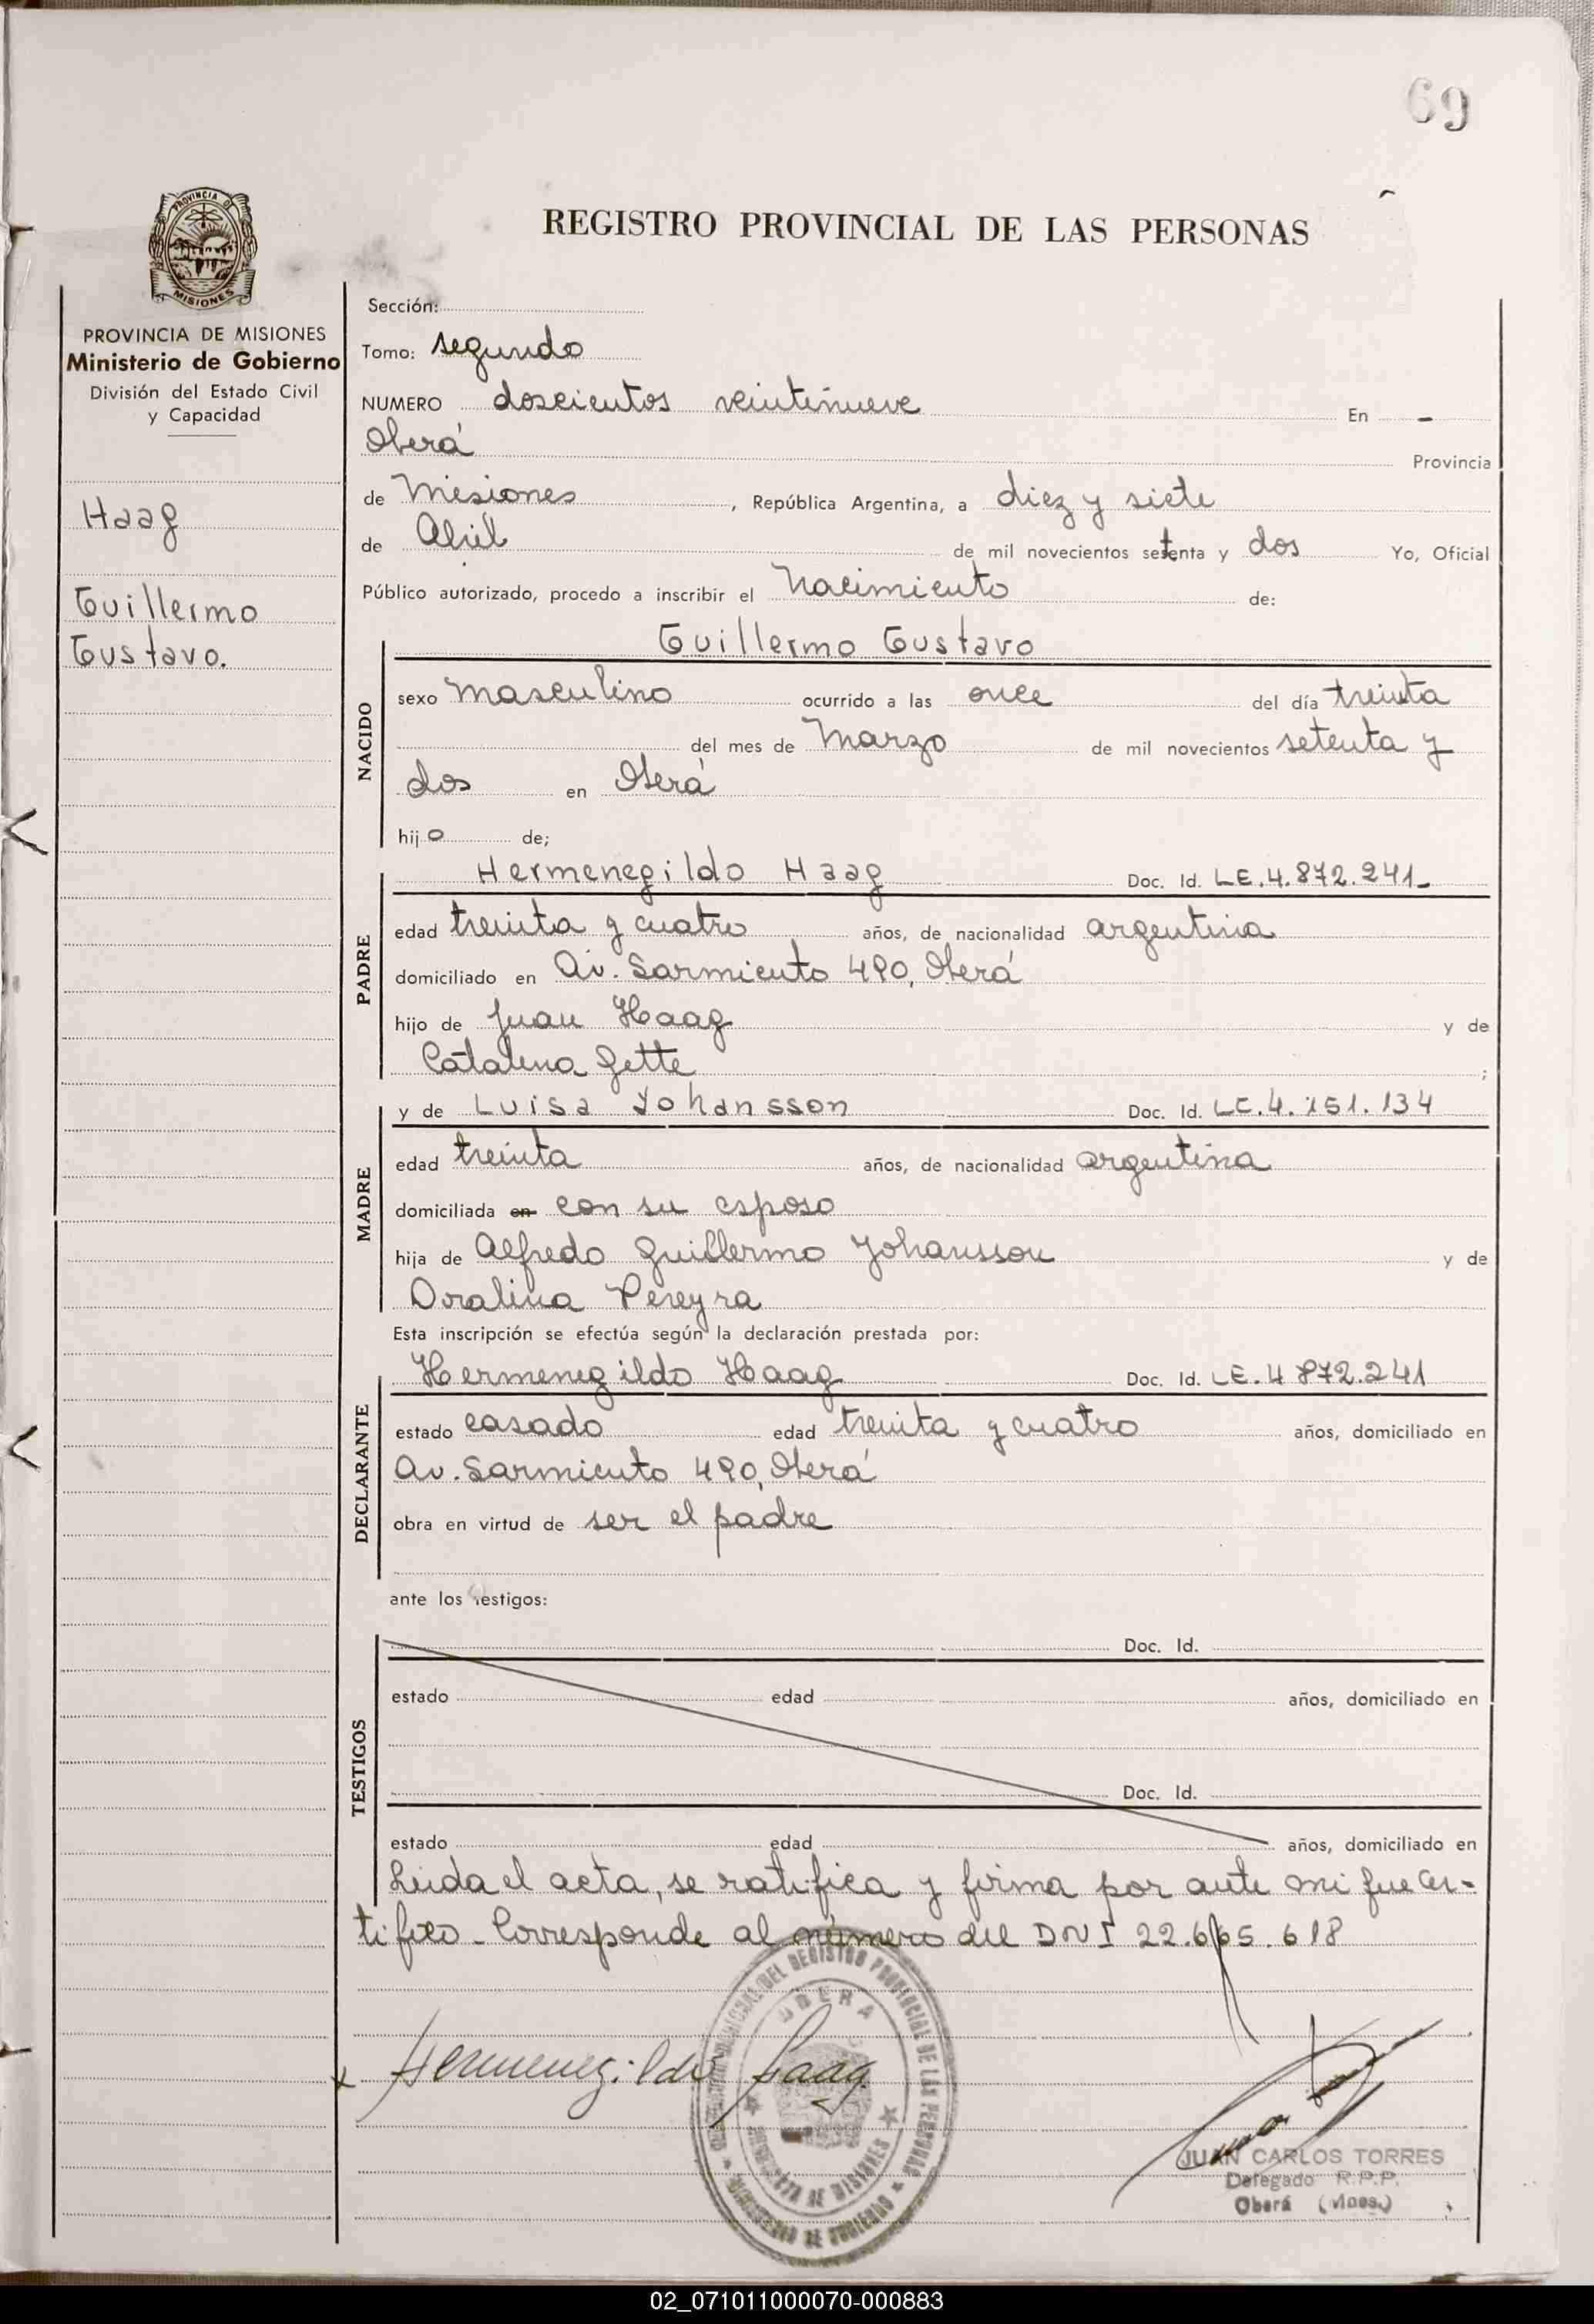 69
PROVINCIA DE
MISIONES
REGISTRO PROVINCIAL DE LAS PERSONAS
PROVINCIA DE MISIONES
Ministerio de Gobierno
División del Estado Civil
y Capacidad
Haag
Guillermo
Gustavo.
Sección:
Tomo: segundo
NUMERO doscientos veintinueve En -
Oberá Provincia
de Misiones, República Argentina, a diez y siete
de Abril de mil novecientos setenta y dos Yo, Oficial
Público autorizado, procedo a inscribir el Nacimiento de:
NACIDO
Guillermo Gustavo
sexo masculino ocurrido a las once del día treinta
del mes de Marzo de mil novecientos setenta y
dos en Oberá
hijo de;
PADRE
Hermenegildo Haag Doc. Id. LE.4.872.241-
edad treinta y cuatro años, de nacionalidad argentina
domiciliado en Av. Sarmiento 490, Oberá
hijo de Juan Haag y de
Catalina Gette ;
MADRE
y de Luisa Johansson Doc. Id. LC.4.151.134
edad treinta años, de nacionalidad argentina
domiciliada en con su esposo
hija de Alfredo Guillermo Johansson y de
Doralina Pereyra
Esta inscripción se efectúa según la declaración prestada por:
DECLARANTE
Hermenegildo Haag Doc. Id. LE.4 872.241
estado casado edad treinta y cuatro años, domiciliado en
Av. Sarmiento 490, Oberá
obra en virtud de ser el padre
ante los testigos:
TESTIGOS
Doc. Id.
estado edad años, domiciliado en
Doc. Id.
estado edad años, domiciliado en
Leida el acta, se ratifica y firma por ante mi que cer-
tifico - Corresponde al número del DNI 22.665.618
Hermenegildo Haag
OBERA
JUAN CARLOS TORRES
Delegado R.P.P.
Oberá (Mnes.)
02_071011000070-000883